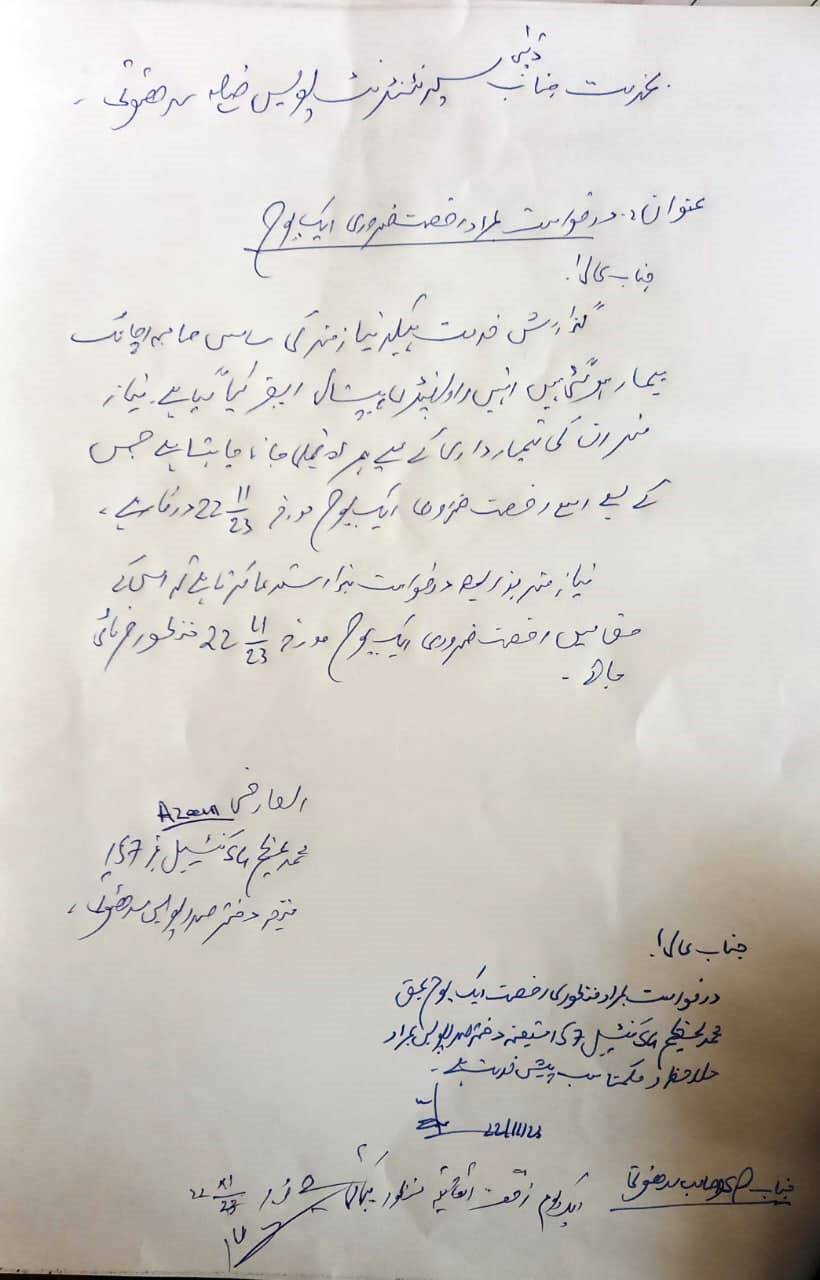 بخدمت جناب ڈپٹی سپرنٹنڈنٹ پولیس ضلع سدھنوتی ۔
عنوان :۔ درخواست بمراد رخصت ضروری ایک یوم
جناب عالی!
گذارش خدمت ہیکہ نیاز مند کی ساس صاحبہ اچانک
بیمار ہو گئی ہیں انہیں راولپنڈی ہسپتال ایڈمٹ کیا گیا ہے۔ نیاز
مند ان کی تیمارداری کے لیے ہمراہ فیملی جانا چاہتا ہے جس
کے لیے اسے رخصت ضروری ایک یوم مورخہ 22 11/23 درکار ہے ۔
نیاز مند بذریعہ درخواست ہذا استدعا کرتا ہے کہ اس کے
حق میں رخصت ضروری ایک یوم مورخہ 22 11/23 منظور فرمائی
جائے ۔
العارض Azeem
محمد عظیم کنسٹیبل نمبر 157
متعینہ دفتر صدر پولیس سدھنوتی ،
جناب عالی!
درخواست بمراد منظوری رخصت ایک یوم بحق
محمد عظیم کنسٹیبل 157 متعینہ دفتر صدر پولیس بمراد
ملاحظہ و حکم مناسب پیش خدمت ہے ۔
22/11/23
جناب SP صاحب سدھنوتی
ایک یوم رخصت اتفاقیہ منظور کی جاتی ہے 22 XI/23